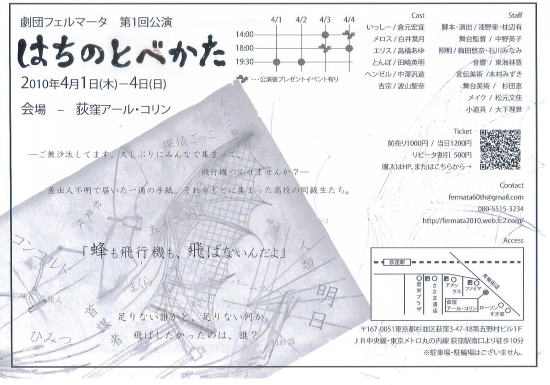 劇団フェルマータ 第1回公演
はちのとべかた
2010年4月1日(木)―4日(日)
会場 － 荻窪アール・コリン
4/1 4/2 4/3 4/4
14:00
18:00
19:30
…公演後プレゼントイベント有り
Cast
いっしー / 倉元宏宣
メロス / 白井葉月
エリス / 高橋あゆ
とんぼ / 田崎英明
ヘンゼル / 中澤汎造
吉宗 / 波山聖奈
Staff
脚本・演出 / 淺野東・枕辺有
舞台監督 / 中野美子
照明 / 梅田悠奈・石川みなみ
音響 / 東海林豊
宣伝美術 / 木村みずき
舞台美術 / 杉田恵
メイク / 松元文佳
小道具 / 大下理世
Ticket
前売り1000円 / 当日1200円
リピータ割引 500円
購入はHP、またはこちらから→
Contact
fermata60th@gmail.com
080-5515-3234
http://fermata2010.web.fc2.com/
Access
荻窪駅
青梅街道
西友プラザ
ささま書店
アメックス
ファミマ
荻窪アール・コリン
ローソン
すき家
〒167-0051東京都杉並区荻窪3-47-18第五野村ビル1F
JR中央線・東京メトロ丸の内線 荻窪駅南口より徒歩10分
※駐車場・駐輪場はございません。
探偵ごっこ
―ご無沙汰してます。久しぶりにみんなで集まって、
飛行機つくりませんか？―
差出人不明で届いた一通の手紙。それをもとに集まった高校の同級生たち。
「蜂も飛行機も、飛ばないんだよ」
コンプレックス
人類
明日
首謀者
ひみつ
足りない誰かと、足りない何か。
飛ばしたかったのは、誰？